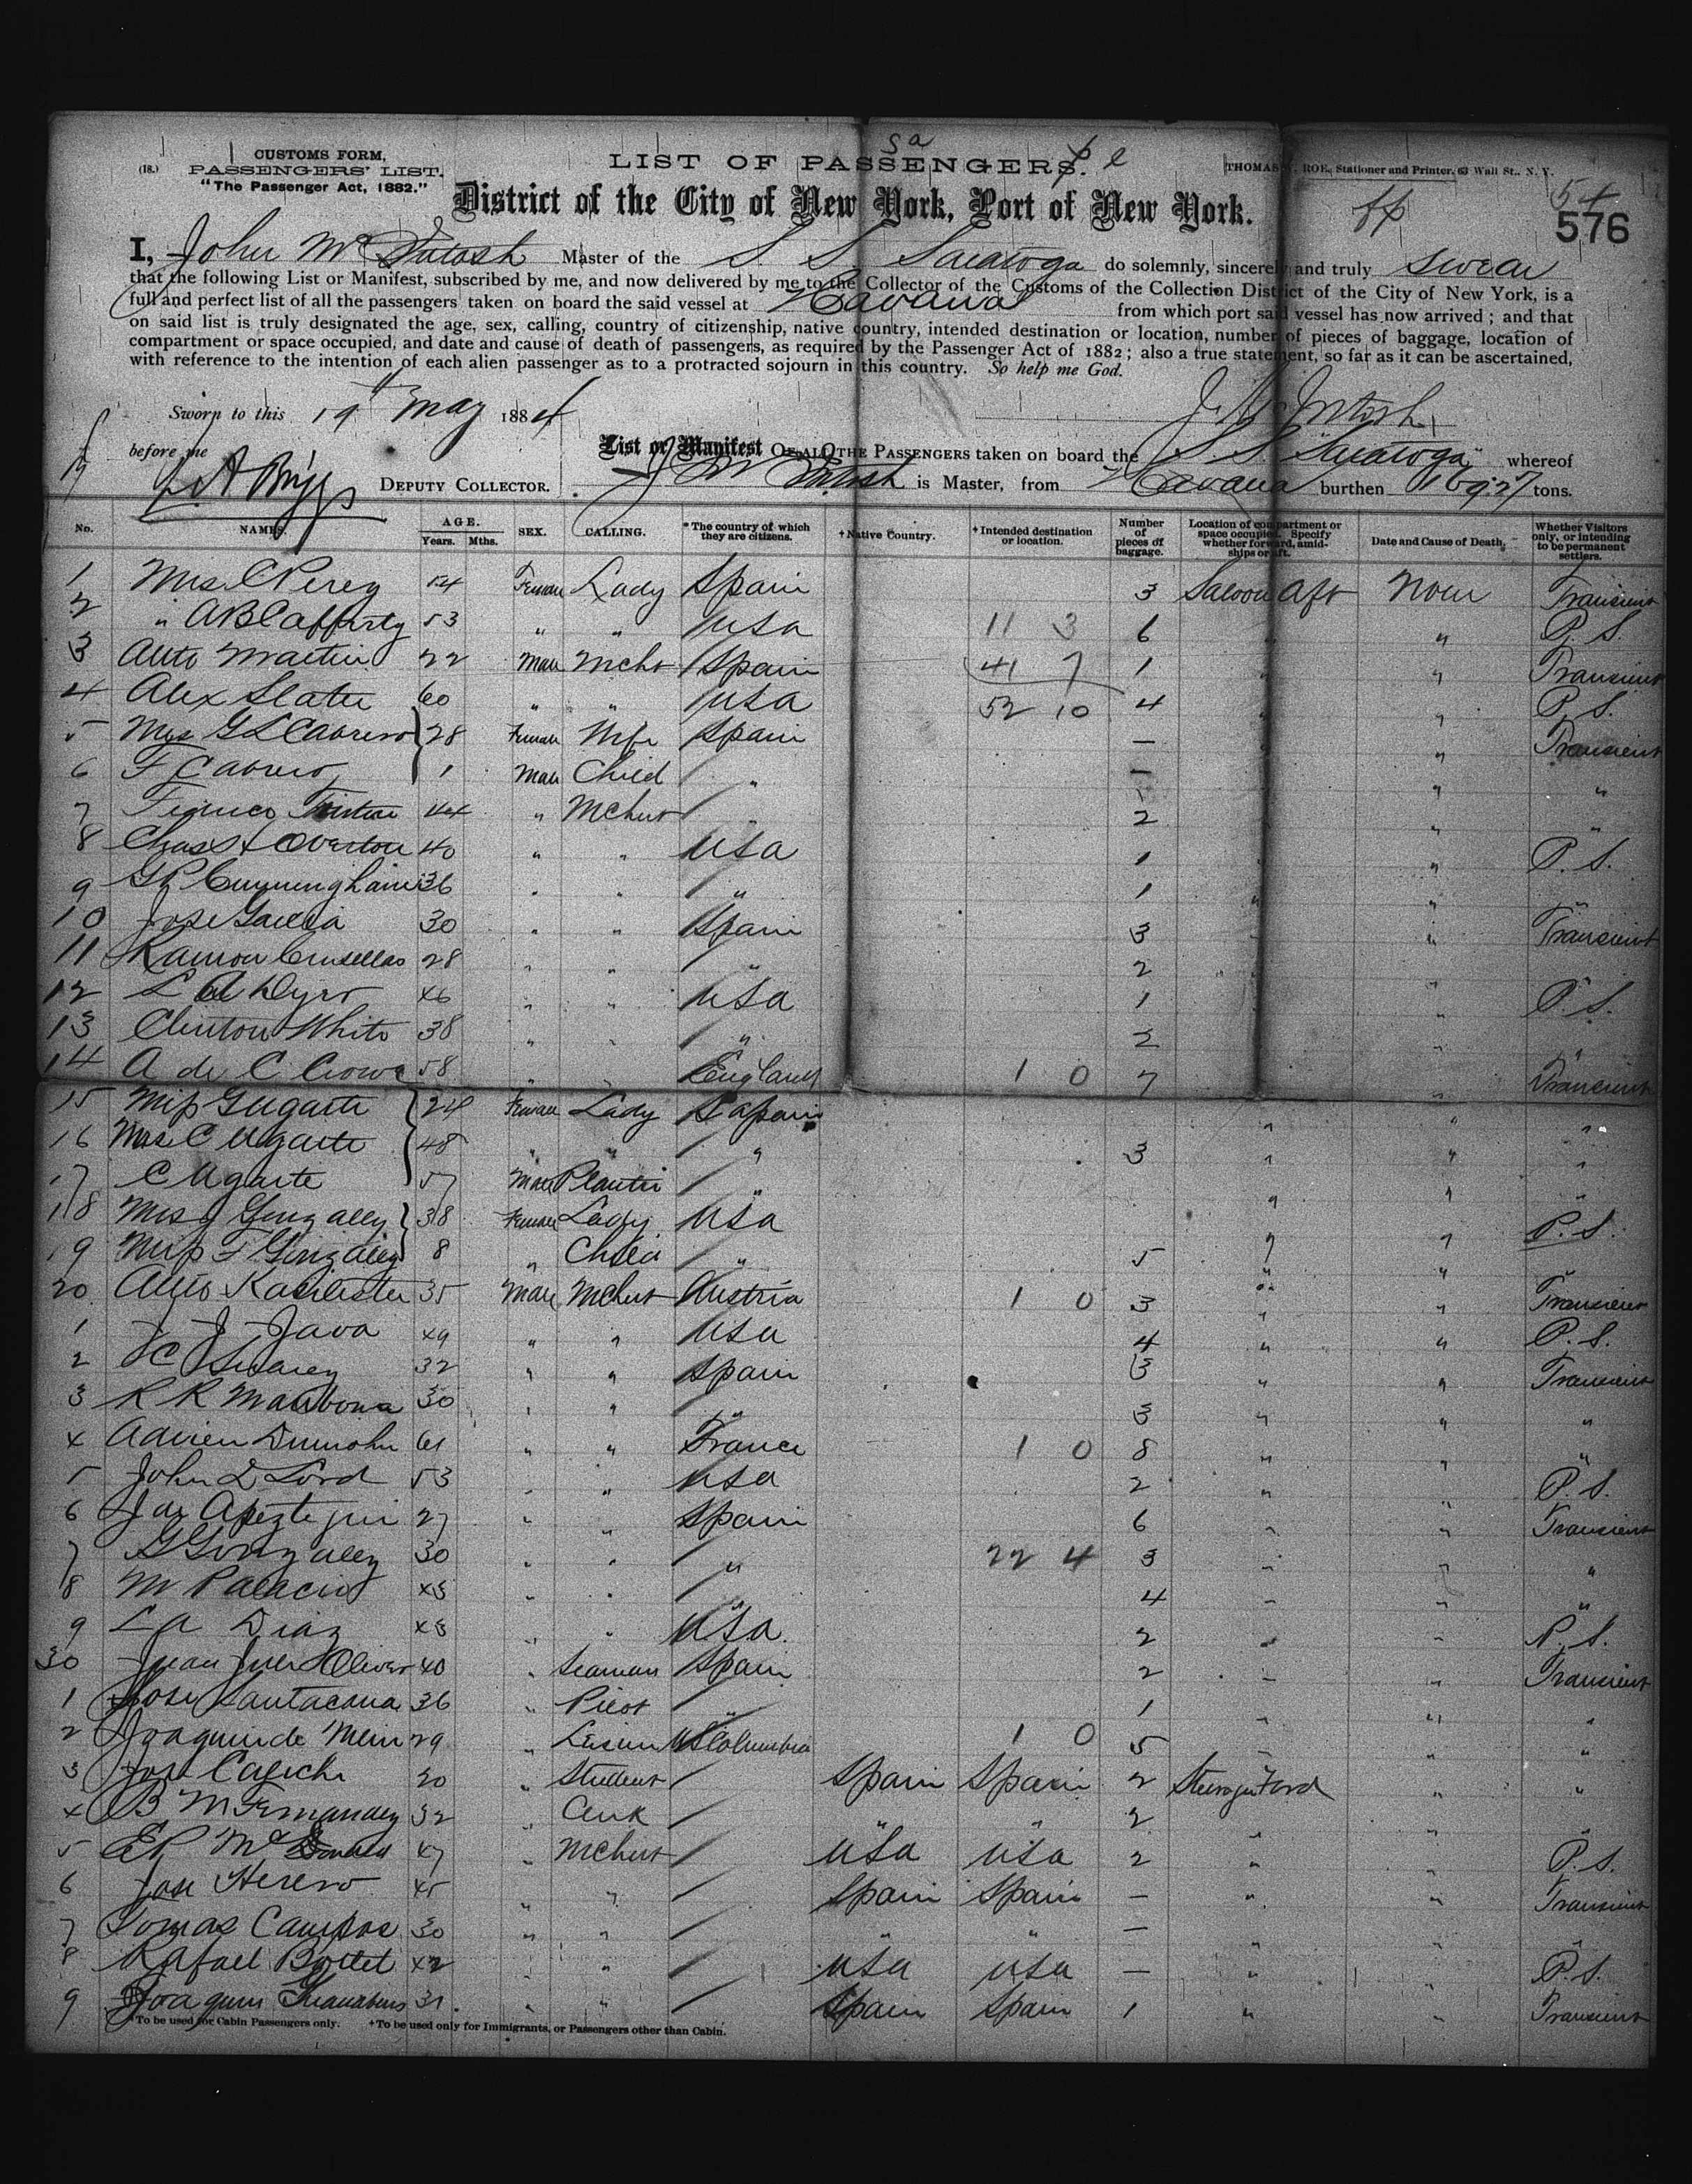 (18.) CUSTOMS FORM, PASSENGERS' LIST. "The Passenger Act, 1882."
LIST OF PASSENGERS.
THOMAS ROE, Stationer and Printer, 63 Wall St., N. Y.
54
576
District of the City of New York, Port of New York.
I, John McIntosh Master of the S. S. Saratoga do solemnly, sincerely and truly swear
that the following List or Manifest, subscribed by me, and now delivered by me to the Collector of the Customs of the Collection District of the City of New York, is a
full and perfect list of all the passengers taken on board the said vessel at Havana from which port said vessel has now arrived; and that
on said list is truly designated the age, sex, calling, country of citizenship, native country, intended destination or location, number of pieces of baggage, location of
compartment or space occupied, and date and cause of death of passengers, as required by the Passenger Act of 1882; also a true statement, so far as it can be ascertained,
with reference to the intention of each alien passenger as to a protracted sojourn in this country. So help me God.
Sworn to this 19th May 1884
J. McIntosh
before me
DEPUTY COLLECTOR.
List or Manifest OF ALL THE PASSENGERS taken on board the S. S. "Saratoga" whereof
J McIntosh is Master, from Havana burthen tons.
No. NAMES. AGE. Years. Mths. SEX. CALLING. *The country of which they are citizens. †Native Country. †Intended destination or location. Number of pieces of baggage. Location of compartment or space occupied. Specify whether forward, amidships or aft. Date and Cause of Death. Whether Visitors only, or intending to be permanent settlers.
1 Mrs C Perez 54 Female Lady Spain 3 Saloon Aft None Transient
2 " A B Cafferty 53 " " USA 11 3 6 " " P. S.
3 Anto Martin 22 Male Mcht Spain 41 7 1 " Transient
4 Alex Slater 60 " " USA 52 10 4 " " P. S.
5 Mrs G L Cabrero 28 Female Wife Spain — " " Transient
6 F Cabrero 1 Male Child " — " "
7 44 " Mchnt " 2 " "
8 Chas Overton 40 " " USA 1 " P. S.
9 G P Cunningham 36 " " " 1 " " "
10 Jose Garcia 30 " " Spain 3 " Transient
11 Ramon Crusellas 28 " " " 2
12 46 " " USA 1 " P. S.
13 Clinton White 38 " " " 2 " "
14 A de C Crowe 58 " " England 1 0 7 " Transient
15 Miss G Ugarte 24 Female Lady Spain " " "
16 Mrs C Ugarte 48 " " " 3 " " "
17 C Ugarte 57 Male Planter " " " "
18 Mrs J Gonzalez 38 Female Lady USA " " P. S.
19 Miss F Gonzalez 8 " Child " 5 " " "
20 35 Male Mchnt Austria 1 0 3 " " Transient
1 J Java 49 " " USA 4 " " P. S.
2 C Suarez 32 " " Spain 3 " " Transient
3 30 " " " 3 " " "
4 61 " " France 1 0 8 " " "
5 John D Lord 53 " " USA 2 " " P. S.
6 Jas Apeztegui 27 " " Spain 6 " " Transient
7 G Gonzalez 30 " " " 22 4 3 " " "
8 M Palacio 43 " " " 4 " " "
9 L A Diaz 43 " " USA 2 " " P. S.
30 Oliver 40 " Seaman Spain 2 " " Transient
1 Jose Santacana 36 " Pilot " 1 " " "
2 Joaquin de 29 " US Columbia 1 0 5 " " "
3 Jose 20 " Student / Spain Spain 2 Steerage Forwd " "
4 B M Fernandez 32 " Clerk / " " 2 " " "
5 E P McDonald 47 " Mchnt / USA USA 2 " " P. S.
6 Jose Herero 45 " " / Spain Spain — " " Transient
7 Tomas Campos 30 " " / " " — " " "
8 Rafael 42 " " / USA USA — " " P. S.
9 Joaquin 31 " " / Spain Spain 1 " " Transient
*To be used for Cabin Passengers only. †To be used only for Immigrants, or Passengers other than Cabin.